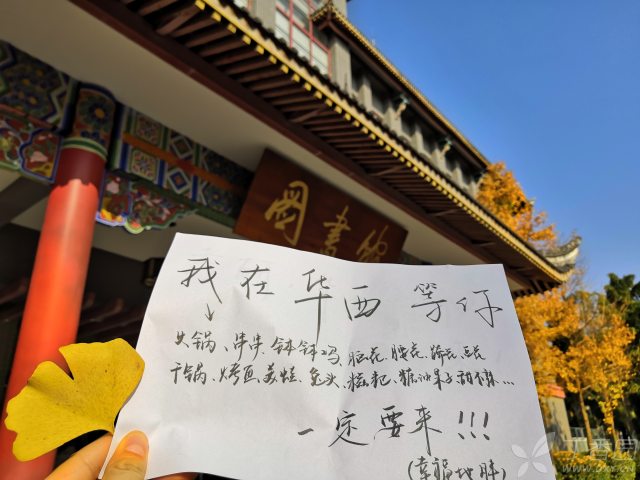 圖書館
我在华西等你
火锅、串串、钵钵鸡、脑花、腰花、蹄花、豆花
干锅、烤鱼、美蛙、兔头、糍粑、糖油果子 ...
一定要来!!!
(幸福地胖)